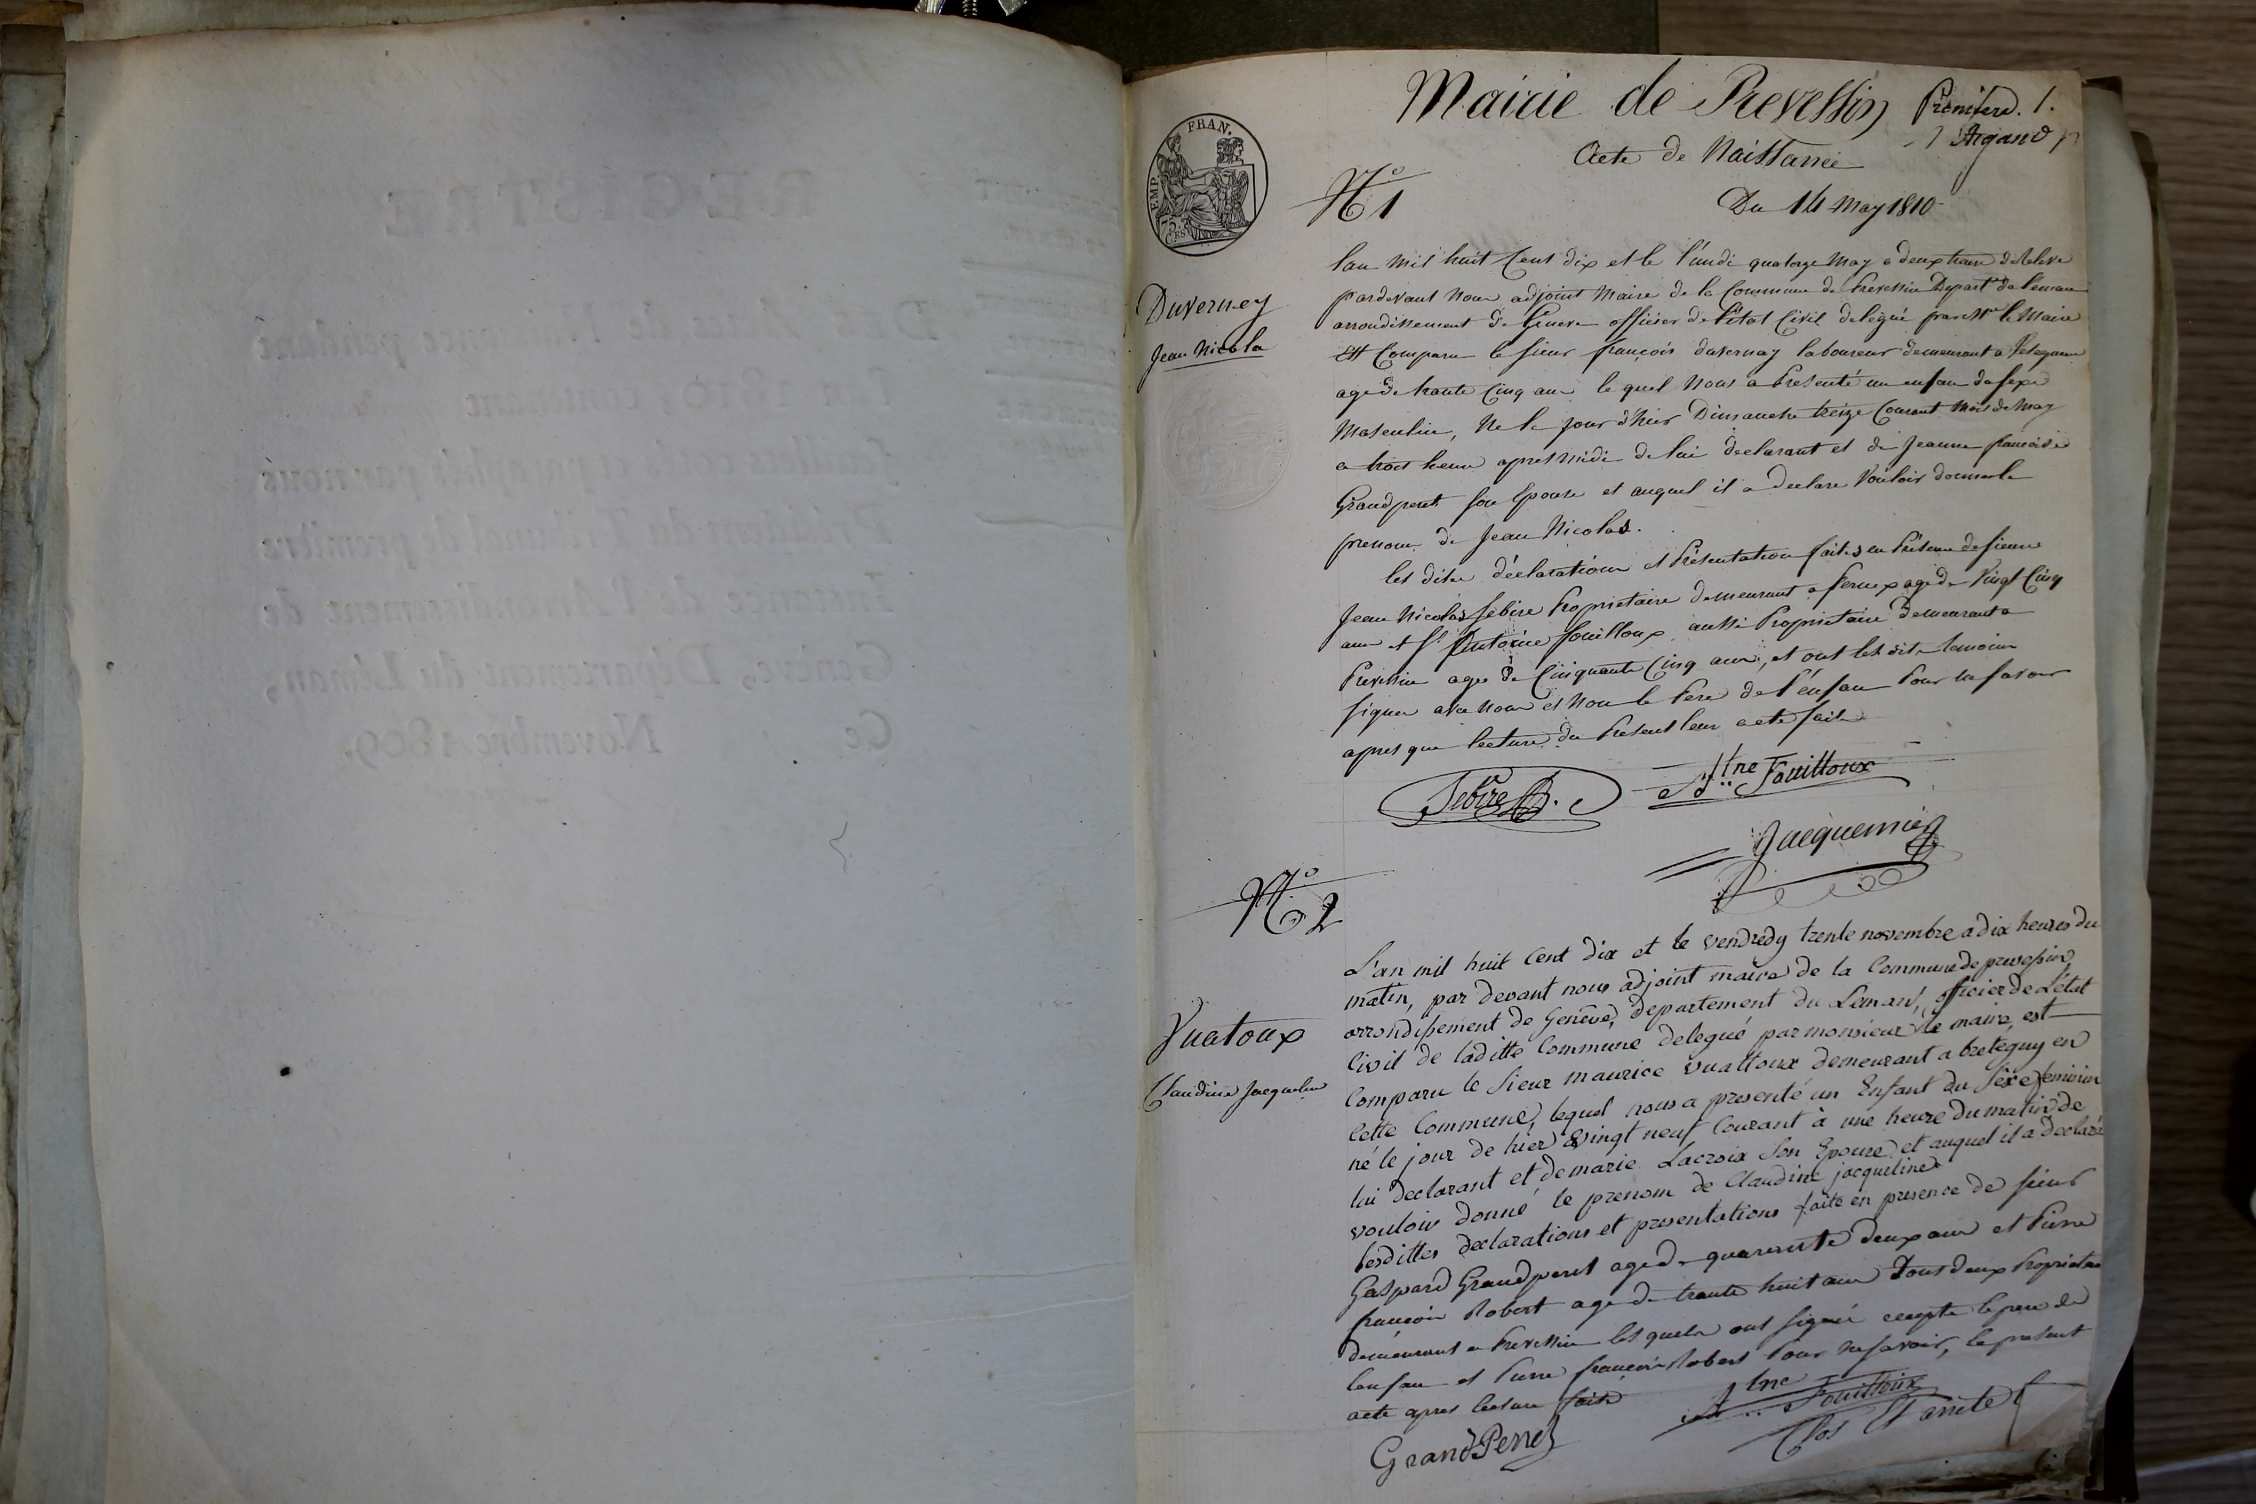 Mairie de Prevessin
Premiere. 1.
Argand
Acte de Naissance
FRAN.
EMP.
75
CES
N.o 1
Du 14 may 1810
lan mil huit Cent dix et le lundi quatorze May a deux heure de Releve
pardevant Nous adjoint Maire de la Commune de Prevessin Depart.t du leman
arrondissement de Geneve officier de l'état Civil delegué par Mr le Maire
Est Comparu le sieur françois duvernay laboureur demeurant a
agé de trante Cinq ans le quel Nous a Presenté un enfan du sexe
Masculin, Ne le jour d'hier Dimanche treize Courant Mois de May
a trois heure apres midi de lui declarant et de jeanne francoise
Grandperet son Epouse et auquel il a declare Vouloir donner le
prenom de Jean Nicolas.
Duverney
Jean Nicola
les dites déclaration et Présentation faites en Présence de sieur
Jean Nicolas Sebire Proprietaire demeurant a ferney agé de Vingt Cinq
ans et Sr Antoine fouilloux aussi Proprietaire demeurant a
Prevessin agé de Cinquante Cinq ans, et ont les dits temoins
signer avec nous et Non le Pere de l'énfan Pour ne savoir
apres que lecture du Present leur a eté faite
Sebire
Atne Fouilloux
Jacquemier
N.o 2
L'an mil huit Cent dix et le vendredy trente novembre a dix heures du
matin, par devant nous adjoint maire de la Commune de prevessin
arrondissement de Genève, departement du Leman, officier de L'état
Civil de laditte Commune delegué par monsieur le maire, est
Comparu le Sieur maurice vuattoux demeurant a breteguy en
Cette Commune, lequel nous a presenté un Enfant du Sèxe feminin
né le jour de hier vingt neuf Courant à une heure du matin de
lui declarant et de marie Lacroix Son Epouse et auquel il a declaré
vouloir donné le prenom de Claudine jacqueline
Vuatoux
Claudine Jacqueline
lesdittes declarations et presentations faite en presence de sieur
Gaspard Grandperret agé de quarante deux ans et Pierre
françois Robert agé de trante huit ans Tous deux Proprietaire
demeurant a Prevessin les quels ont signé excepte le pere de
lenfan et Pierre françois Robert Pour ne savoir, le present
acte apres lecture faite
Atne Fouilloux
Clos et arrété
GrandPerret